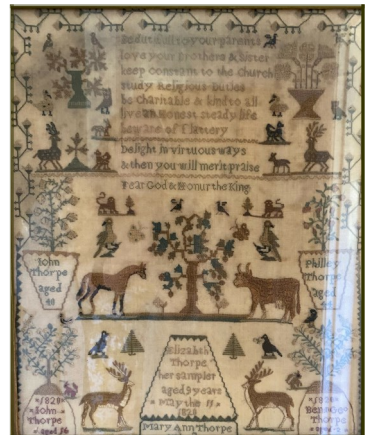 Be dutiful to your parents
love your Brothers & Sister
keep constant to the Church
study Religious Duties
be Charitable & kind to all
live an Honest steady life
beware of Flattery
Delight in virtuous ways
& then you will merit praise
Fear God & Honur the King
John
Thorpe
aged
Phillep
Thorpe
aged
Elizabth
Thorpe
her sampler
aged 9 years
May the 11
1828
1828
John
Thorpe
aged
Thorpe
Mary Ann Thorpe